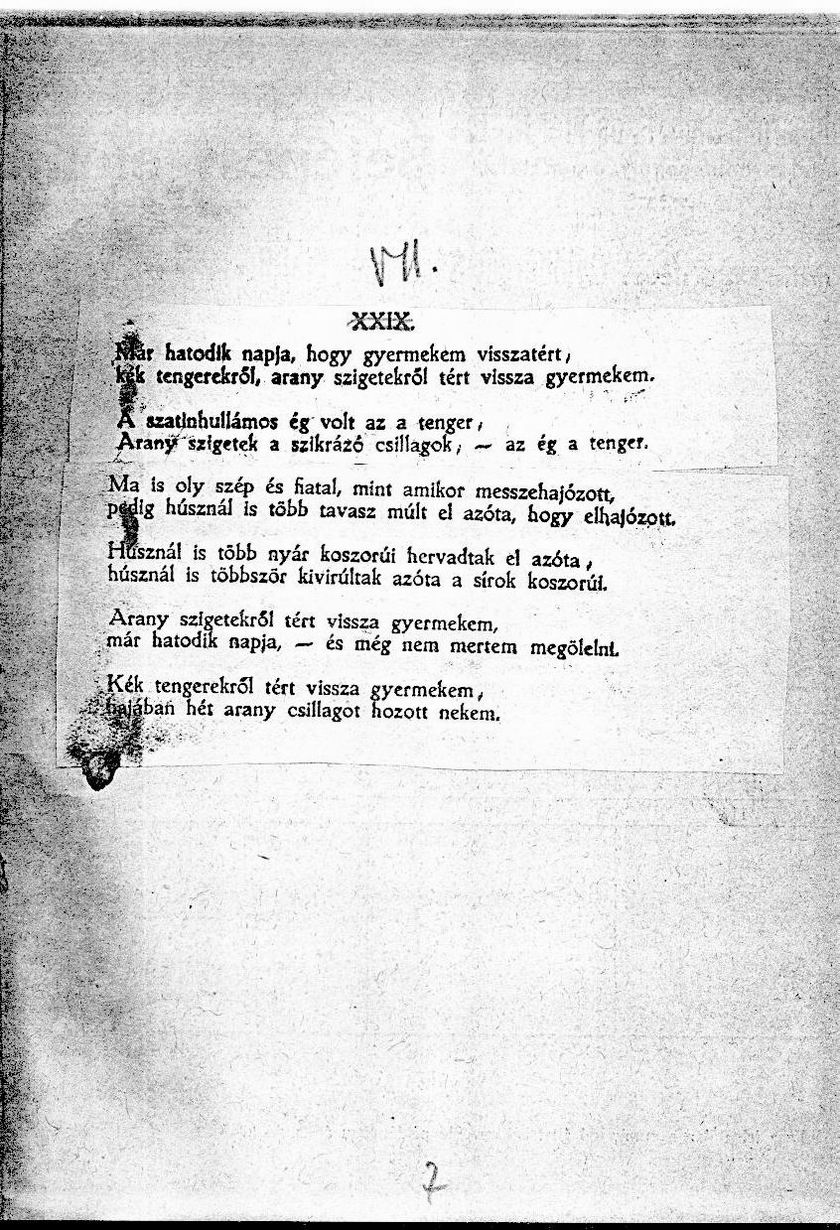 VII.
XXIX.
Már hatodik napja, hogy gyermekem visszatért,
kék tengerekről, arany szigetekről tért vissza gyermekem.
A szatinhullámos ég volt az a tenger,
Arany szigetek a szikrázó csillagok, — az ég a tenger.
Ma is oly szép és fiatal, mint amikor messzehajózott,
pedig húsznál is több tavasz múlt el azóta, hogy elhajózott.
Húsznál is több nyár koszorúi hervadtak el azóta,
húsznál is többször kivirúltak azóta a sírok koszorúi.
Arany szigetekről tért vissza gyermekem,
már hatodik napja, — és még nem mertem megölelni.
Kék tengerekről tért vissza gyermekem,
hajában hét arany csillagot hozott nekem.
7